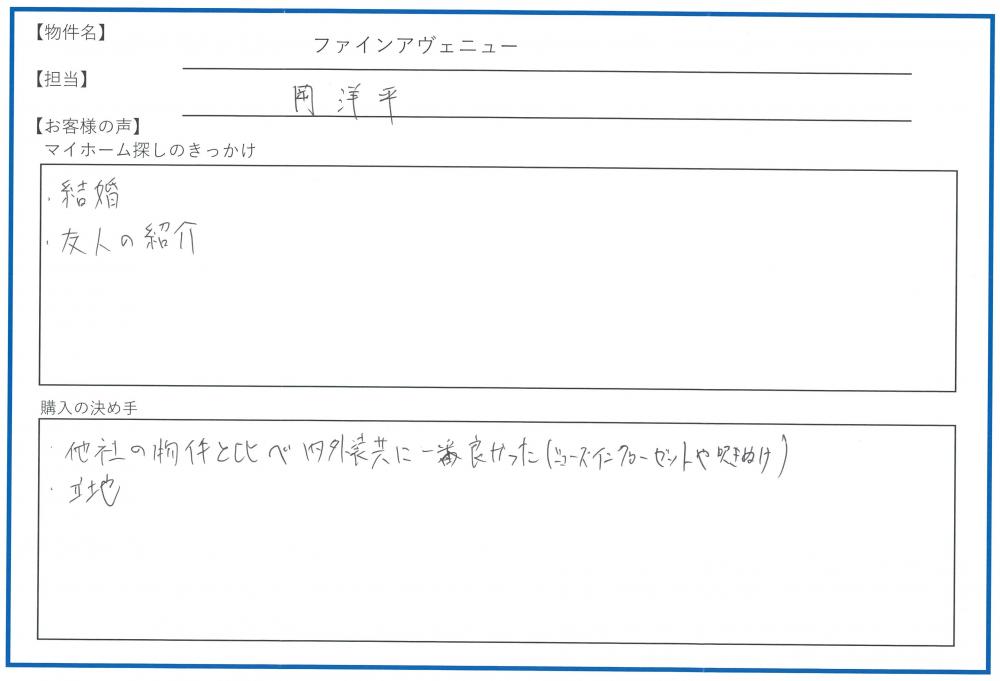 【物件名】
ファインアヴェニュー
【担当】
岡 洋平
【お客様の声】
マイホーム探しのきっかけ
・結婚
・友人の紹介
購入の決め手
・他社の物件と比べ内外装共に一番良かった(シューズインクローゼットや吹きぬけ)
・立地